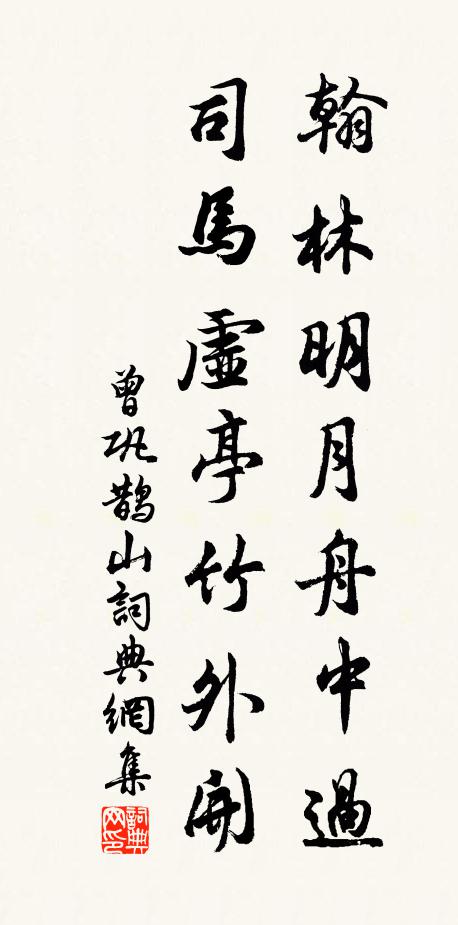 翰林明月舟中過
司馬虛亭竹外開
曾鞏鵲山詞典網集
詞典网印